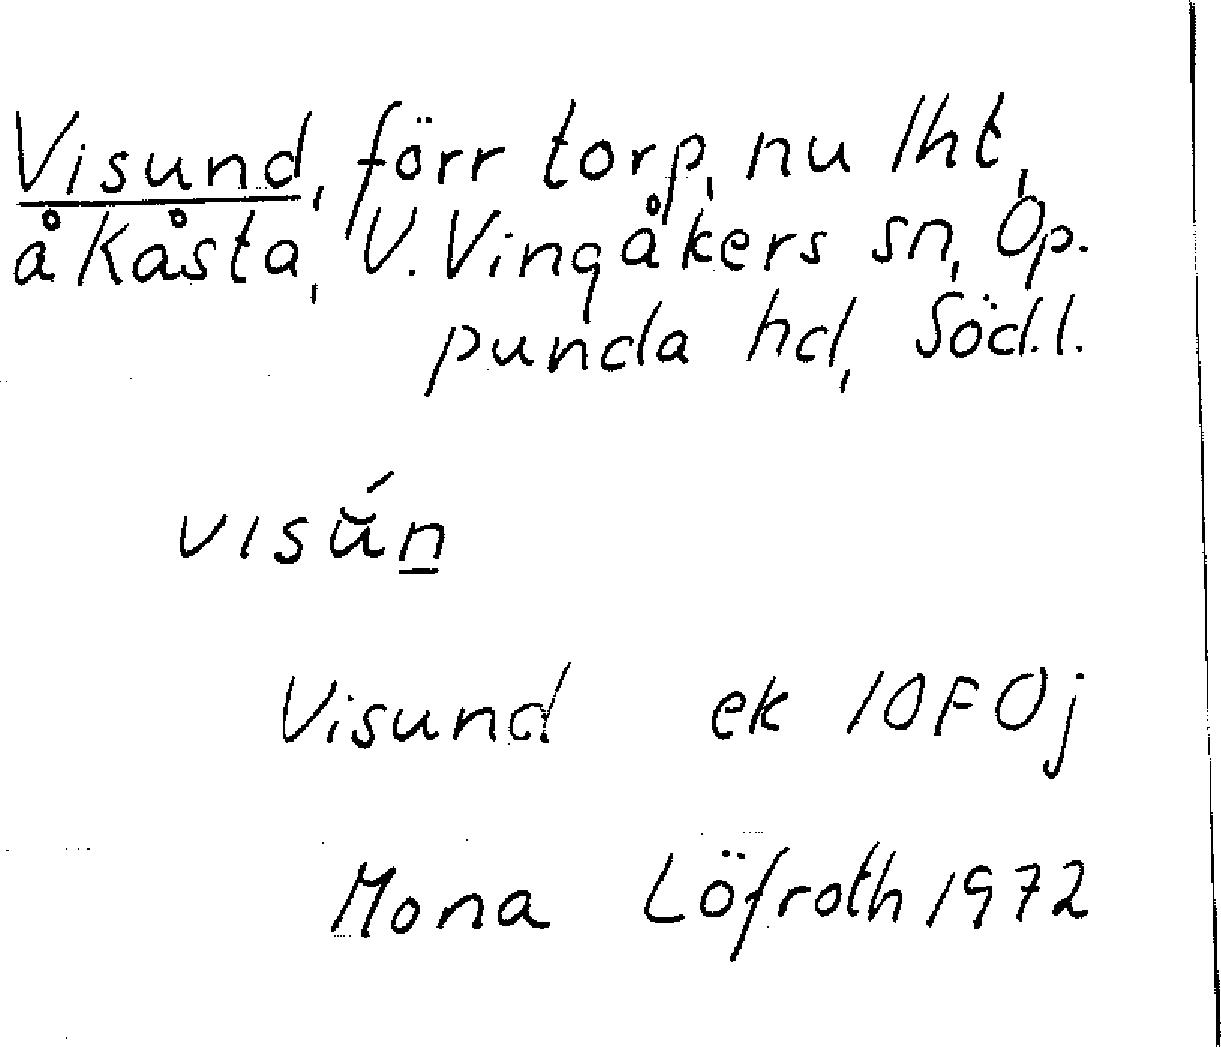 Visund, förr torp, nu lht,
å Kåsta, V. Vingåkers sn, Op-
punda hd, Söd.l.
visŭ́n̲
Visund ek 10F0j
Mona Löfroth 1972